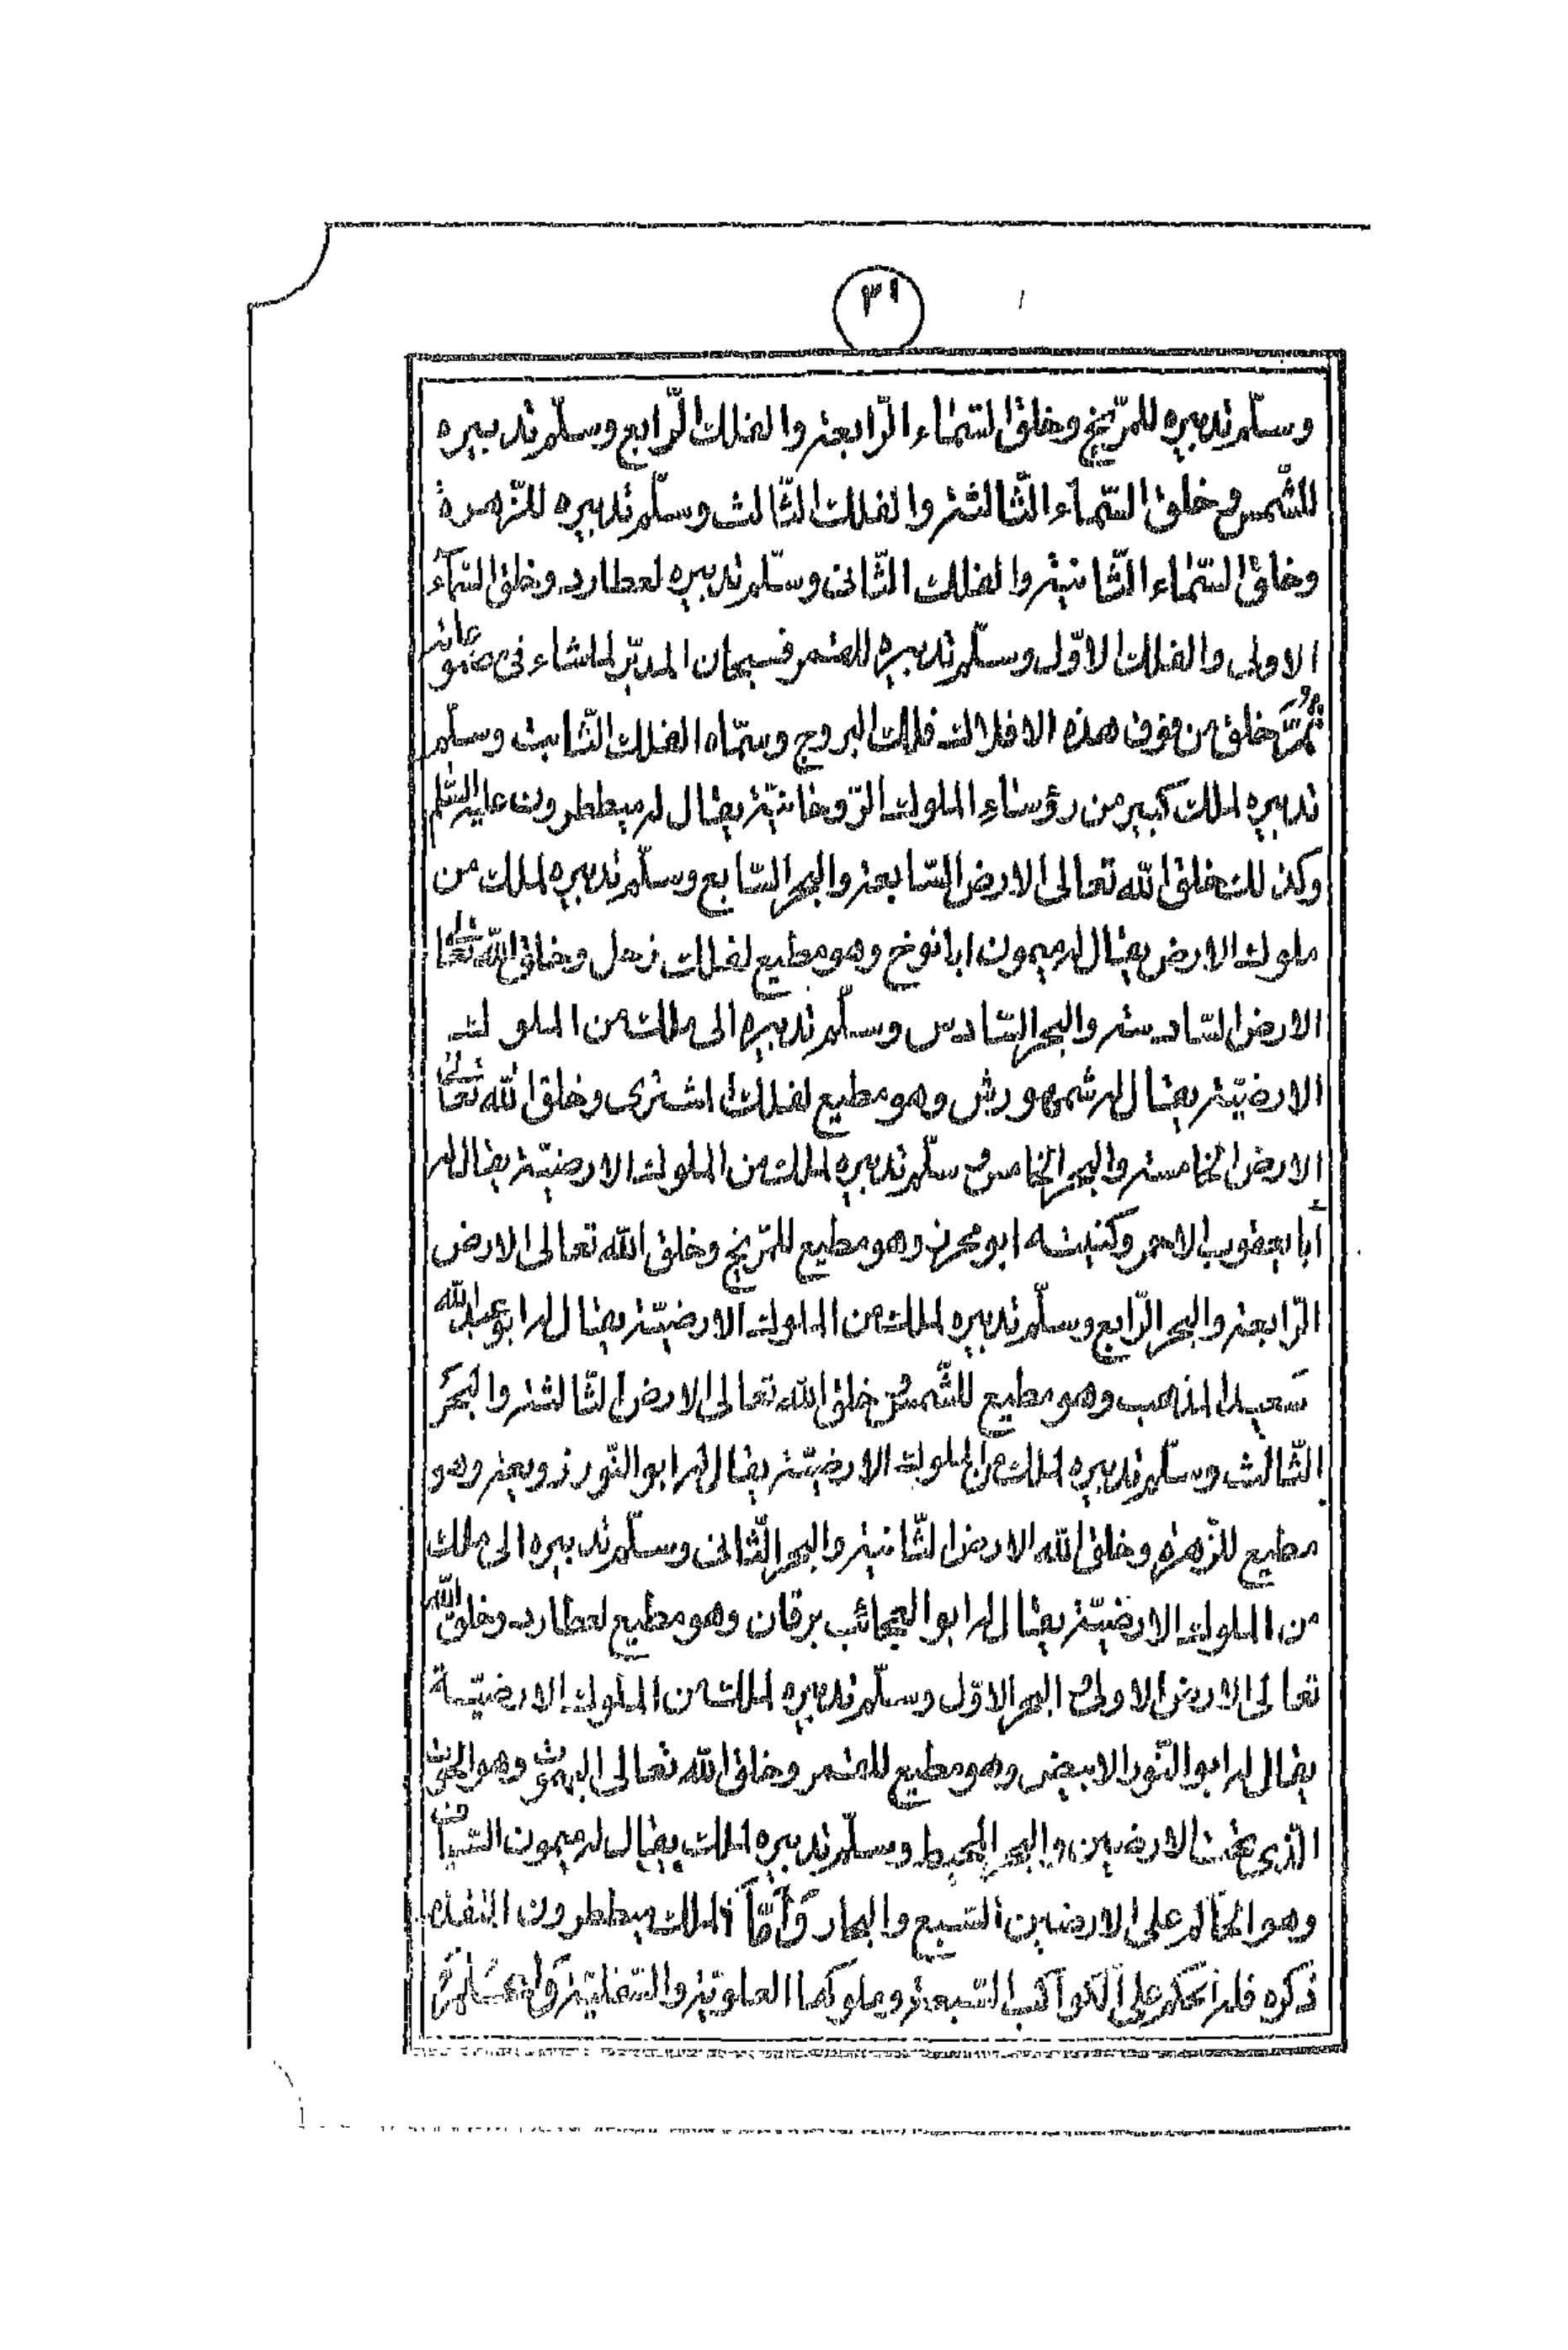 ٣١
وسلّم تدبيره للمرّيخ وخلق السّماء الرّابعة والفلك الرّابع وسلّم تدبيره
للشّمس وخلق السّمآء الثّالثة والفلك الثّالث وسلّم تدبيره للزّهرة
وخلق السّماء الثّانية والفلك الثّانى وسلّم تدبيره لعطارد وخلق السّمآء
الاولى والفلك الاوّل وسلّم تدبيره للقمر فسبحان المدبّر لما شاء فى
ثُمَّ خلق من فوق هذه الافلاك فلك البروج وسمّاه الفلك الثّابت وسلّم
تدبيره لملك كبير من رؤساء الملوك الرّوحانيّة يقال له ميططرون عليه السّلم
وكذلك خلق الله تعالى الارض السّابعة والبحر السّابع وسلّم تدبيره لملك من
ملوك الارض يقال له ميمون ابا نوخ وهو مطيع لفلك زحل وخلق الله تعالى
الارض السّادسة والبحر السّادس وسلّم تدبيره الى ملك من الملوك
الارضيّة يقال له شمهورش وهو مطيع لفلك اشترى وخلق الله تعالى
الارض الخامسة والبحر الخامس وسلّم تدبيره لملك من الملوك الارضيّة يقال له
أبا يعقوب الاحمر وكنيته ابو محرز وهو مطيع للمرّيخ وخلق الله تعالى الارض
الرّابعة والبحر الرّابع وسلّم تدبيره لملك من الملوك الارضيّة يقال له ابو عبد الله
سَعيد المذهب وهو مطيع للشّمس وخلق الله تعالى الارض الثّالثة والبحرَ
الثّالث وسلّم تدبيره لملك من الملوك الارضيّة يقال له ابو النّور زوبعة وهو
مطيع للزّهرة وخلق الله الارض الثّانية والبحر الثّانى وسلّم تدبيره الى ملك
من الملوك الارضيّة يقال له ابو العجائب برقان وهو مطيع لعطارد وخلق الله
تعالى الارض الاولى و البحر الاوّل وسلّم تدبيره لملك من الملوك الارضيّة
يقال له ابو النّور الابيض وهو مطيع للقمر وخلق الله تعالى البهموت وهو الحوت
الّذى تحت الارضين والبحر المحيط وسلّم تدبيره لملك يقال له ميمون السّياف
وهو الحاكم على الارضين السّبع والبحار وَأَمَّا الملك ميططرون
ذكره فله الحكم على الكواكب السّبعة وملوكها العلويّة والسّفليّة